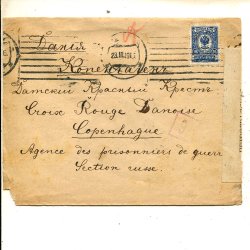 Данія
Копенгагенъ
Датскій Красный Крестъ
Croix Rouge Danoise
Copenhague
Agence des prisonniers de guerre
Section russe.